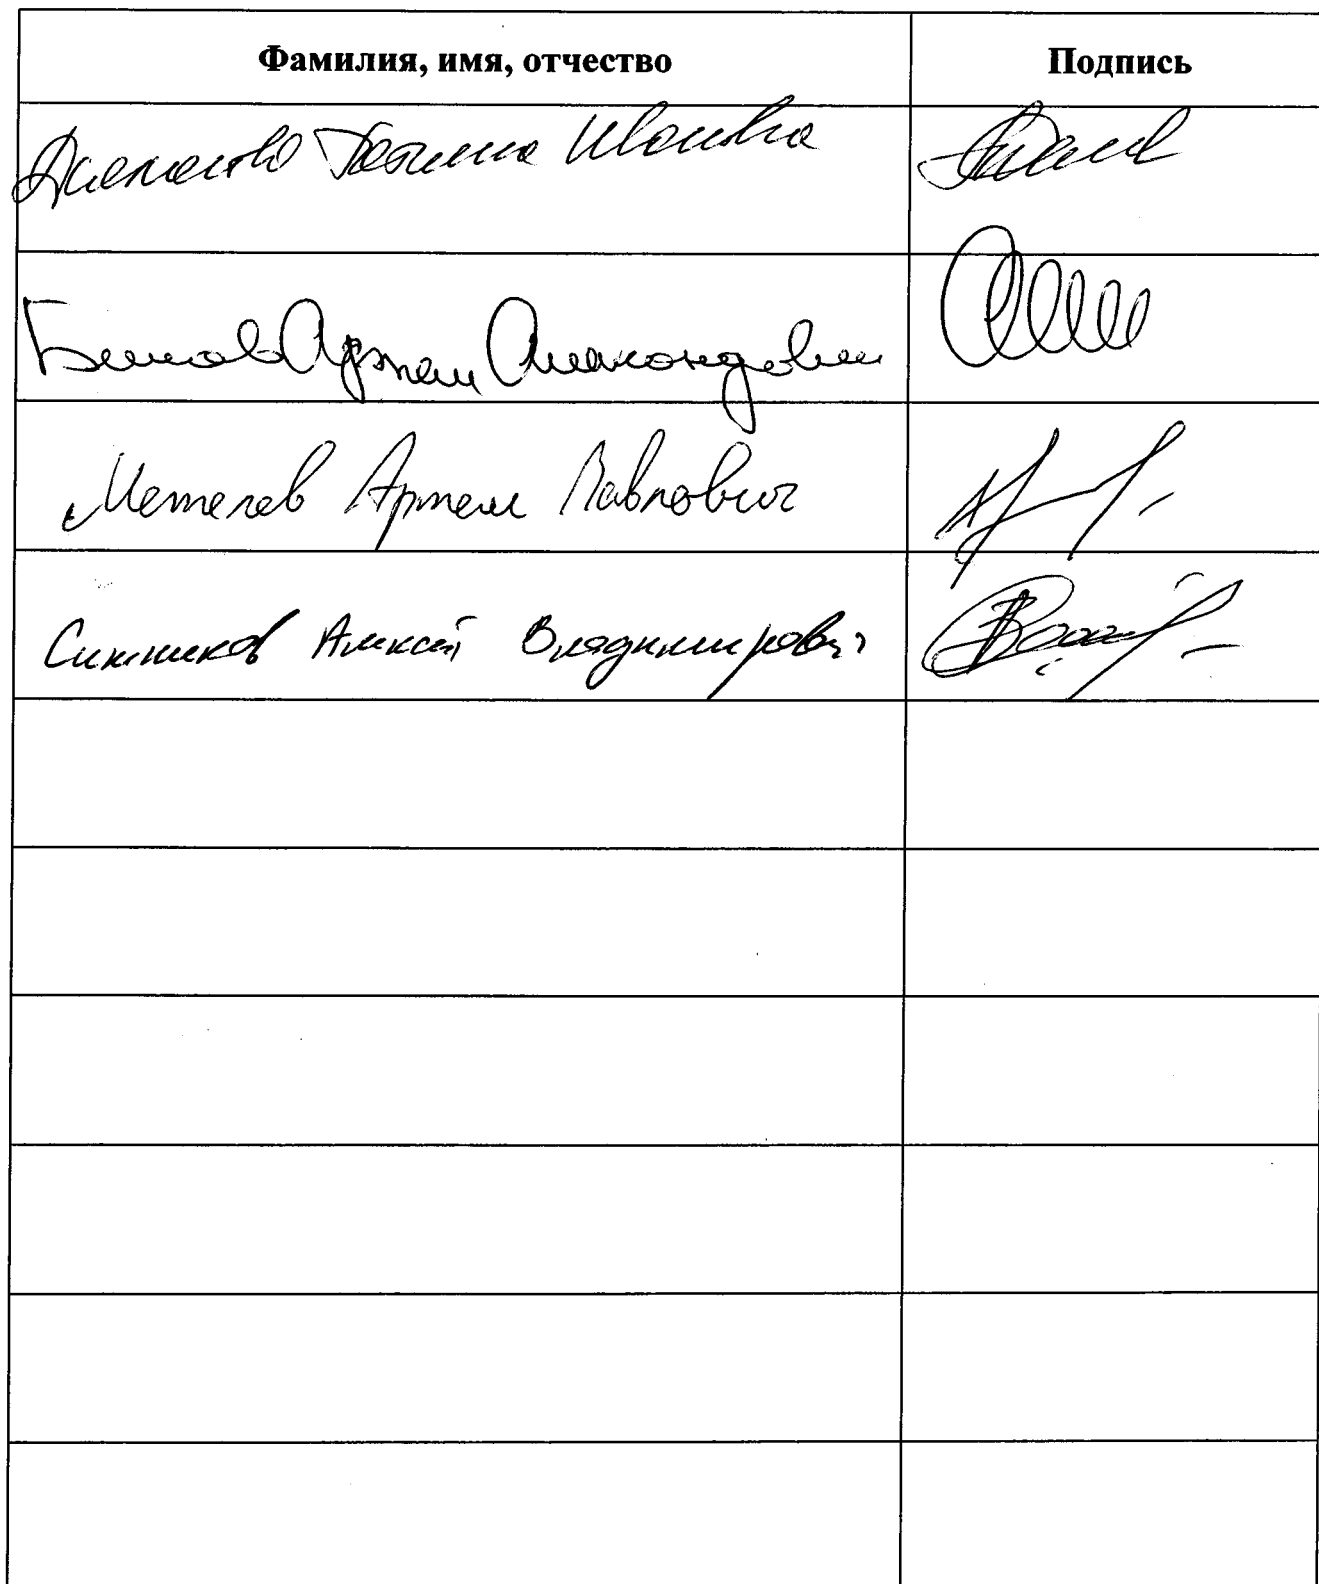 Фамилия, имя, отчество Подпись
Татьяна Ивановна
Артем Александрович
Метелев Артем Павлович
Ситников Алексей Владимирович